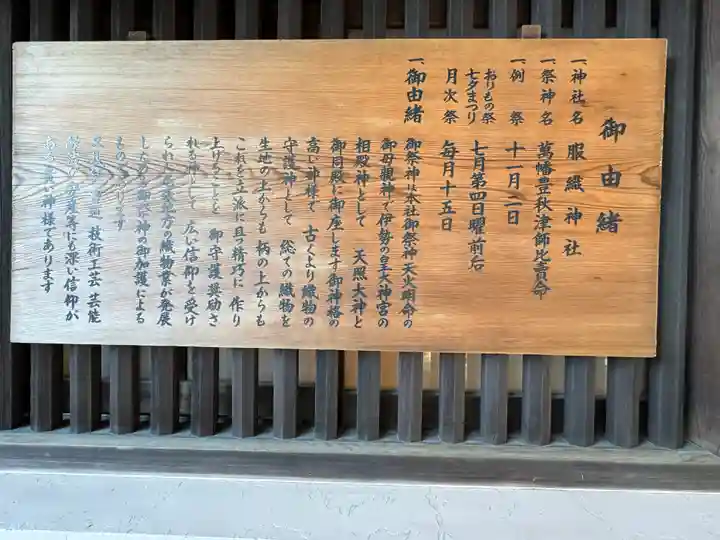 御由緒
一、神社名 服織神社
一、祭神名 萬幡豊秋津師比賣命
一、例 祭 十一月二日
おりもの祭
七夕まつり 七月第四日曜前后
月次祭 毎月十五日
一、御由緒 御祭神は本社御祭神天火明命の
御母親神で伊勢の皇大神宮の
相殿神として 天照大神と
御同殿に御座します御神格の
高い神様で 古くより織物の
守護神として 総ての織物を
生地の上からも 柄の上からも
これを立派に且つ精巧に 作り
上げることを 御守護奨励さ
れる神として 広い信仰を受け
られ 地方の織物業が発展
したのも 御祭神の御加護による
もの であります
技術工芸 芸能
等にも深い信仰が
神様であります